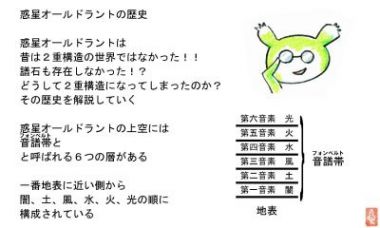 惑星オールドラントの歴史
惑星オールドラントは
昔は2重構造の世界ではなかった!!
譜石も存在しなかった!?
どうして2重構造になってしまったのか?
その歴史を解説していく
惑星オールドラントの上空には
フォンベルト
音譜帯と
と呼ばれる6つの層がある
一番地表に近い側から
闇、土、風、水、火、光の順に
構成されている
第六音素 光
第五音素 火
第四音素 水
第三音素 風
第二音素 土
第一音素 闇
地表
フォンベルト
音譜帯